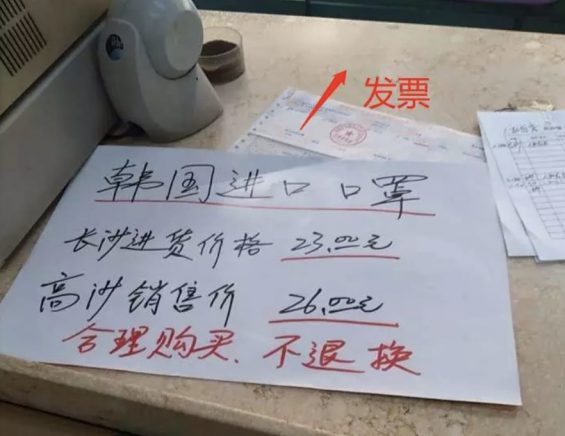 发票
韩国进口口罩
长沙进货价格 23.00元
高沙销售价 26.00元
合理购买、不退换